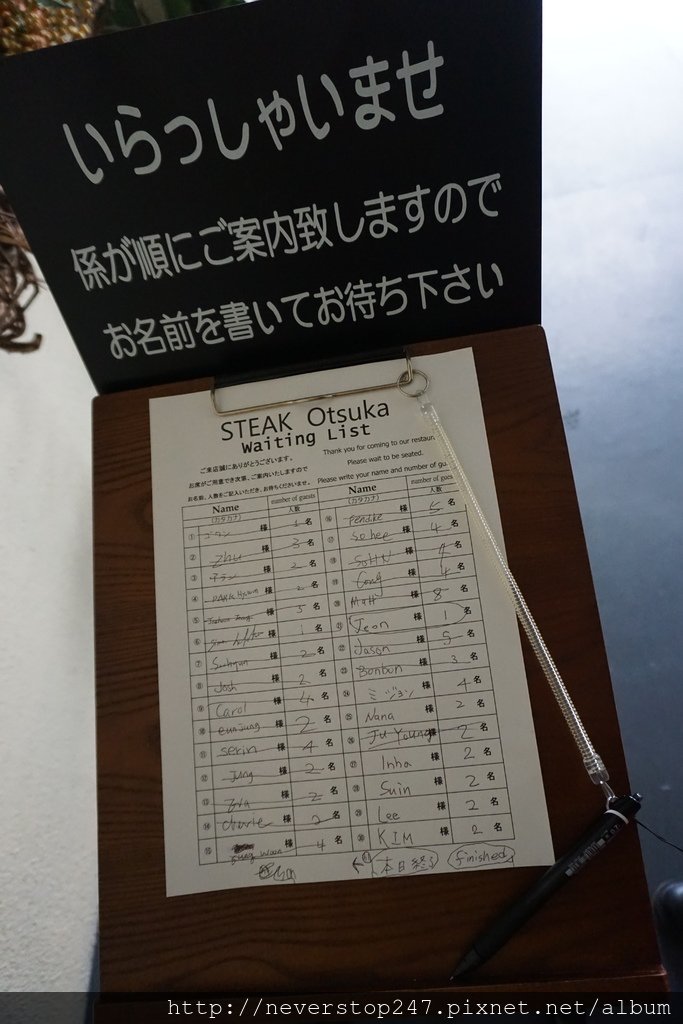 いらっしゃいませ
係が順にご案内致しますので
お名前を書いてお待ち下さい
STEAK Otsuka
Waiting List
ご来店誠にありがとうございます。
お席がご用意でき次第、ご案内いたしますので
お名前、人数をご記入いただき、お待ちくださいませ。
Thank you for coming to our restaur
Please wait to be seated.
Please write your name and number of gu
Name number of guests
(カタカナ) 人数
① 様 名
② Zhu 様 3 名
③ 様 2 名
④ PARK 様 2 名
⑤ 様 名
⑥ 様 1 名
⑦ 様 2 名
⑧ Josh 様 2 名
⑨ Carol 様 4 名
⑩ eunjung 様 2 名
⑪ serin 様 4 名
⑫ Jung 様 2 名
⑬ 様 2 名
⑭ Charlie 様 2 名
⑮ 様 4 名
Name number of gues
(カタカナ) 人数
⑯ 様 5 名
⑰ sohee 様 4 名
⑱ SOHN 様 名
⑲ 様 4 名
⑳ Matt 様 8 名
㉑ Jeon 様 1 名
㉒ Jason 様 5 名
㉓ Bonbon 様 3 名
㉔ ミジョン 様 4 名
㉕ Nana 様 2 名
㉖ Ju Young 様 2 名
㉗ Inha 様 2 名
㉘ Suin 様 2 名
㉙ Lee 様 2 名
㉚ KIM 様 2 名
本日終了 finished
http://neverstop247.pixnet.net/album